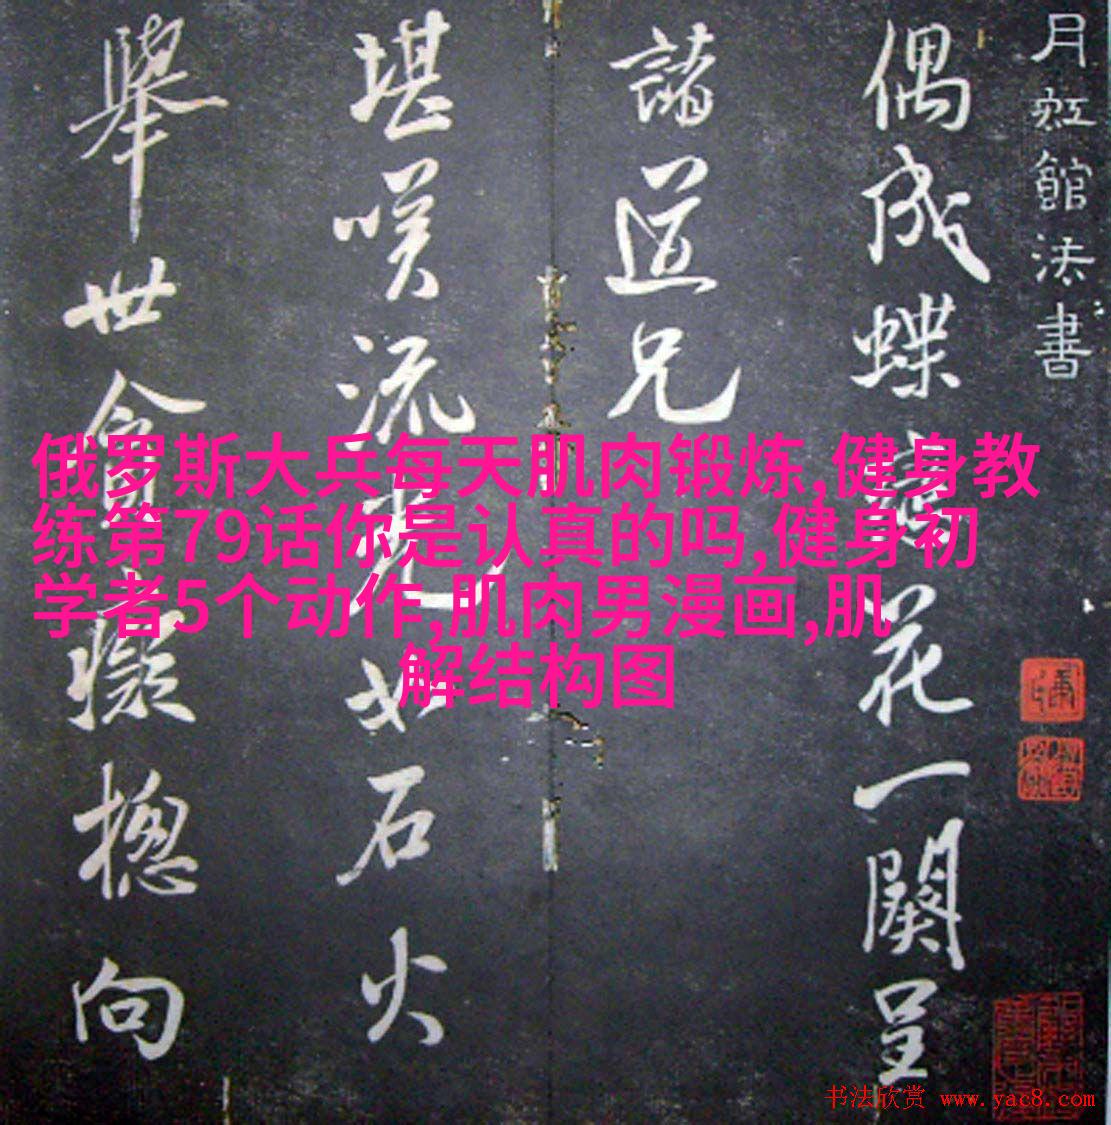 月虹館法書
偶成蝶戀花一闋呈
諸道兄
堪咲流光如石火
舉世貪癡摠向
俄罗斯大兵每天肌肉锻炼,健身教
练第79话你是认真的吗,健身初
学者5个动作,肌肉男漫画,肌
解结构图
书法欣赏 www.yac8.com